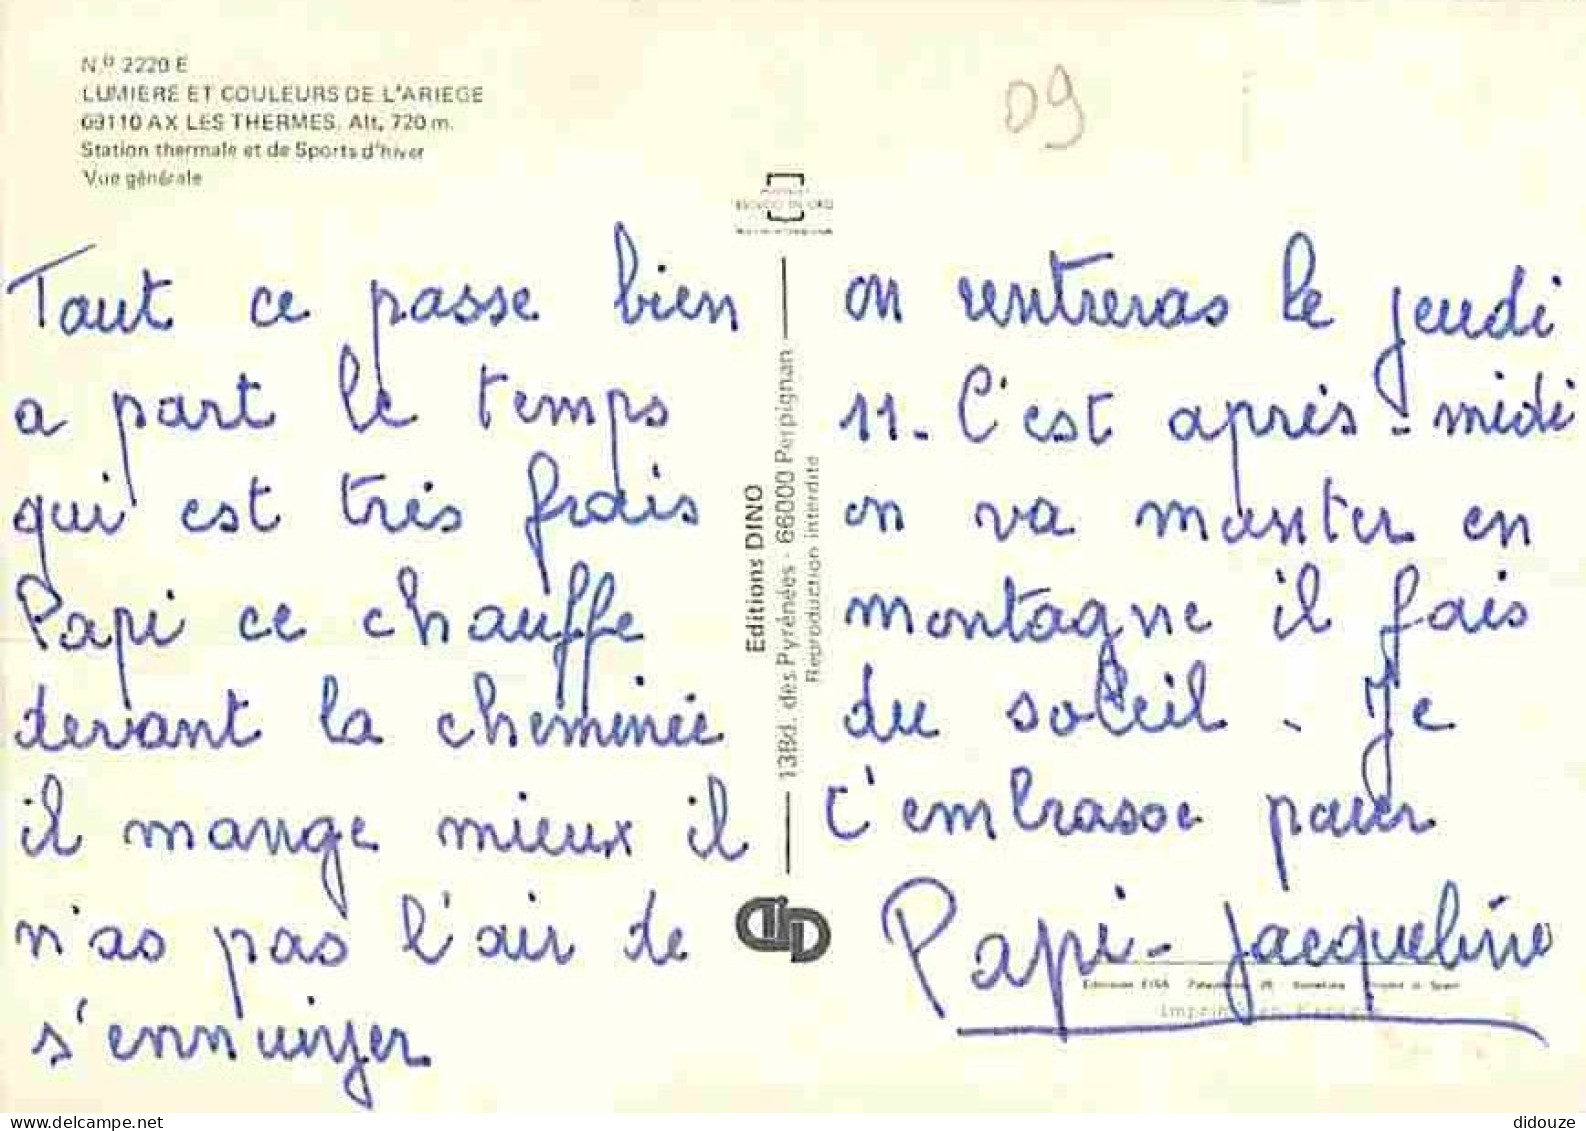 N.º 2220 E
LUMIERE ET COULEURS DE L'ARIEGE
09110 AX LES THERMES. Alt. 720 m.
Station thermale et de Sports d'hiver
Vue générale
09
Tout ce passe bien
a part le temps
qui est très frais
Papi ce chauffe
devant la cheminée
il mange mieux il
n'as pas l'air de
s'ennuyer
Editions DINO
13Bd. des Pyrénées - 66000 Perpignan
Reproduction interdite
on rentreras le jeudi
11. C'est après-midi
on va monter en
montagne il fais
du soleil - Je
t'embrasse pour
Papi - Jacqueline
didouze